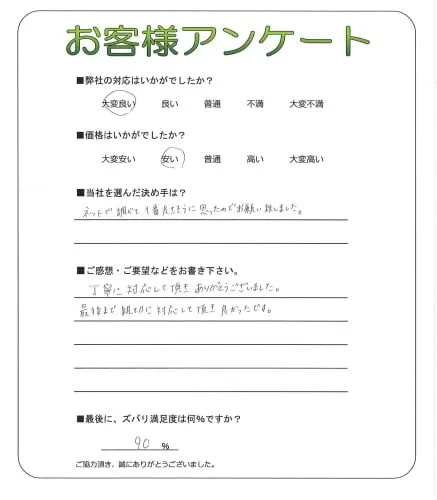 お客様アンケート
■弊社の対応はいかがでしたか？
大変良い 良い 普通 不満 大変不満
■価格はいかがでしたか？
大変安い 安い 普通 高い 大変高い
■当社を選んだ決め手は？
ネットで調べて1番良さそうに思ったのでお願い致しました。
■ご感想・ご要望などをお書き下さい。
丁寧に対応して頂きありがとうございました。
最後まで親切に対応して頂き良かったです。
■最後に、ズバリ満足度は何%ですか？
90 %
ご協力頂き、誠にありがとうございました。